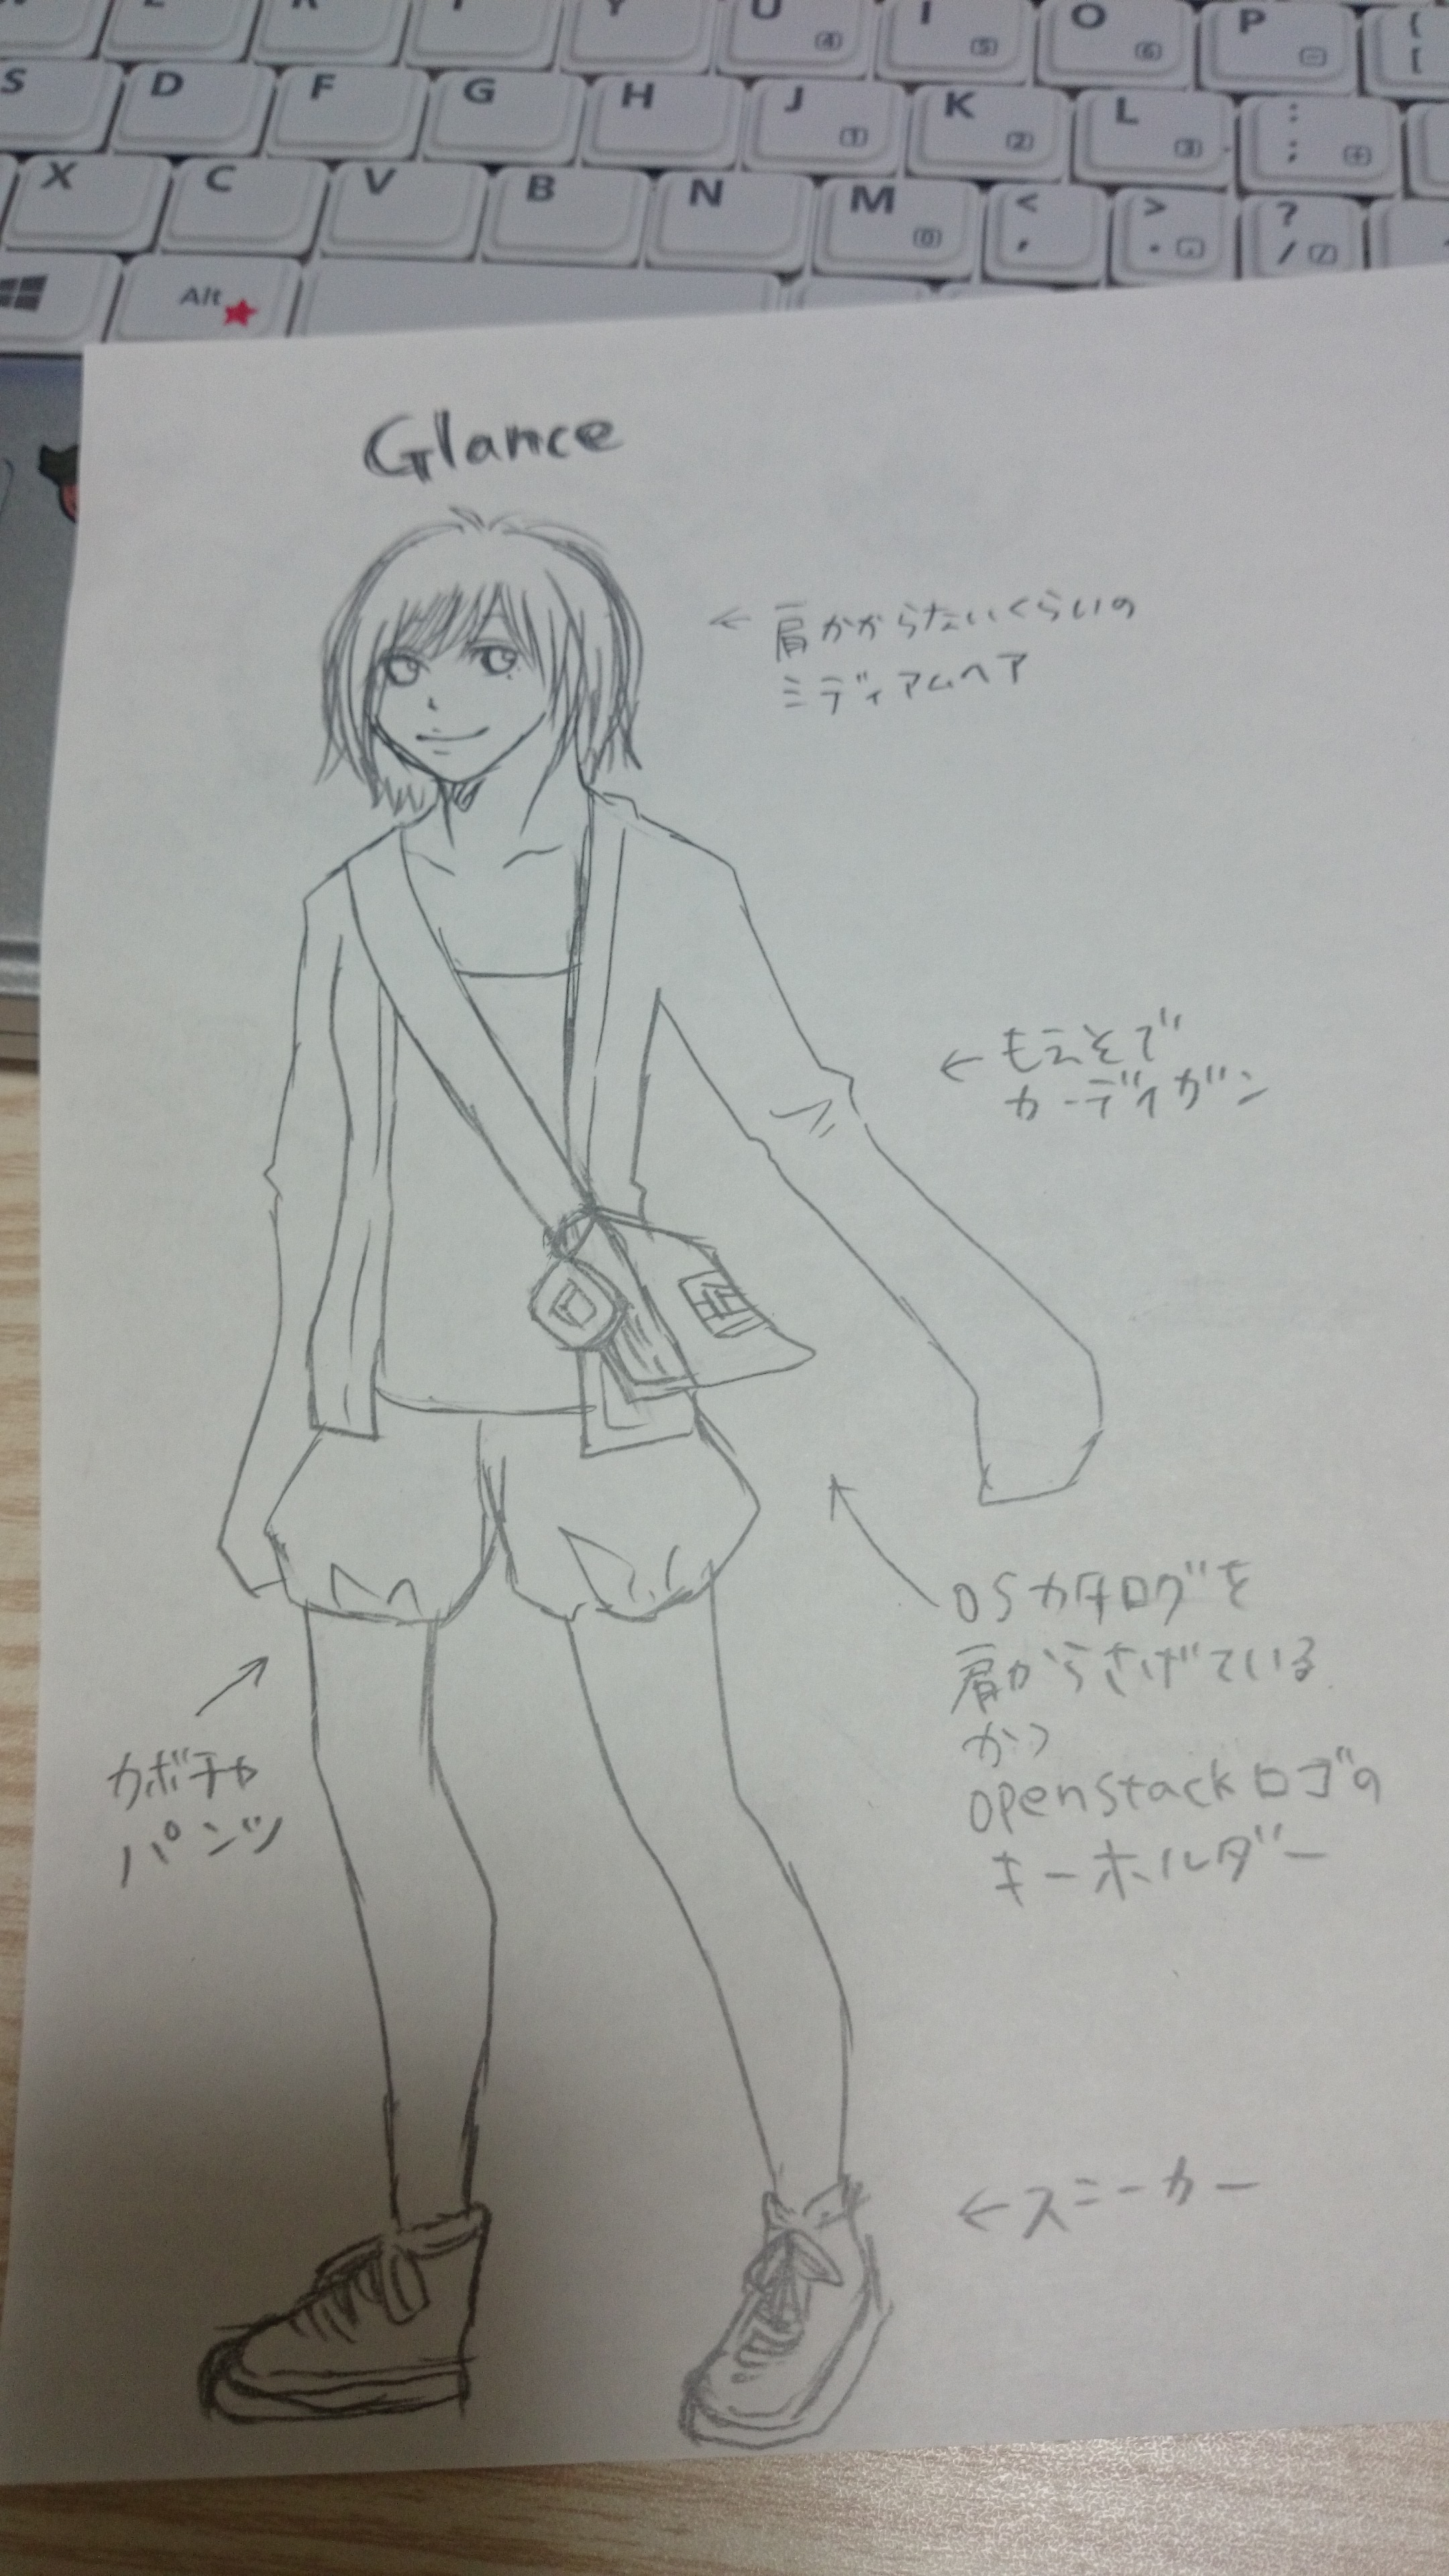 E R T Y U ④ I ⑤ O ⑥ P
S D F G H J ① K ② L ③ : ;
X C V B N M ⓪ < , > . ? /
Alt
Glance
← 肩かからないくらいの
ミディアムヘア
← もえそで
カーディガン
OSカタログを
肩からさげている
かつ
openstackロゴの
キーホルダー
カボチャ
パンツ
← スニーカー